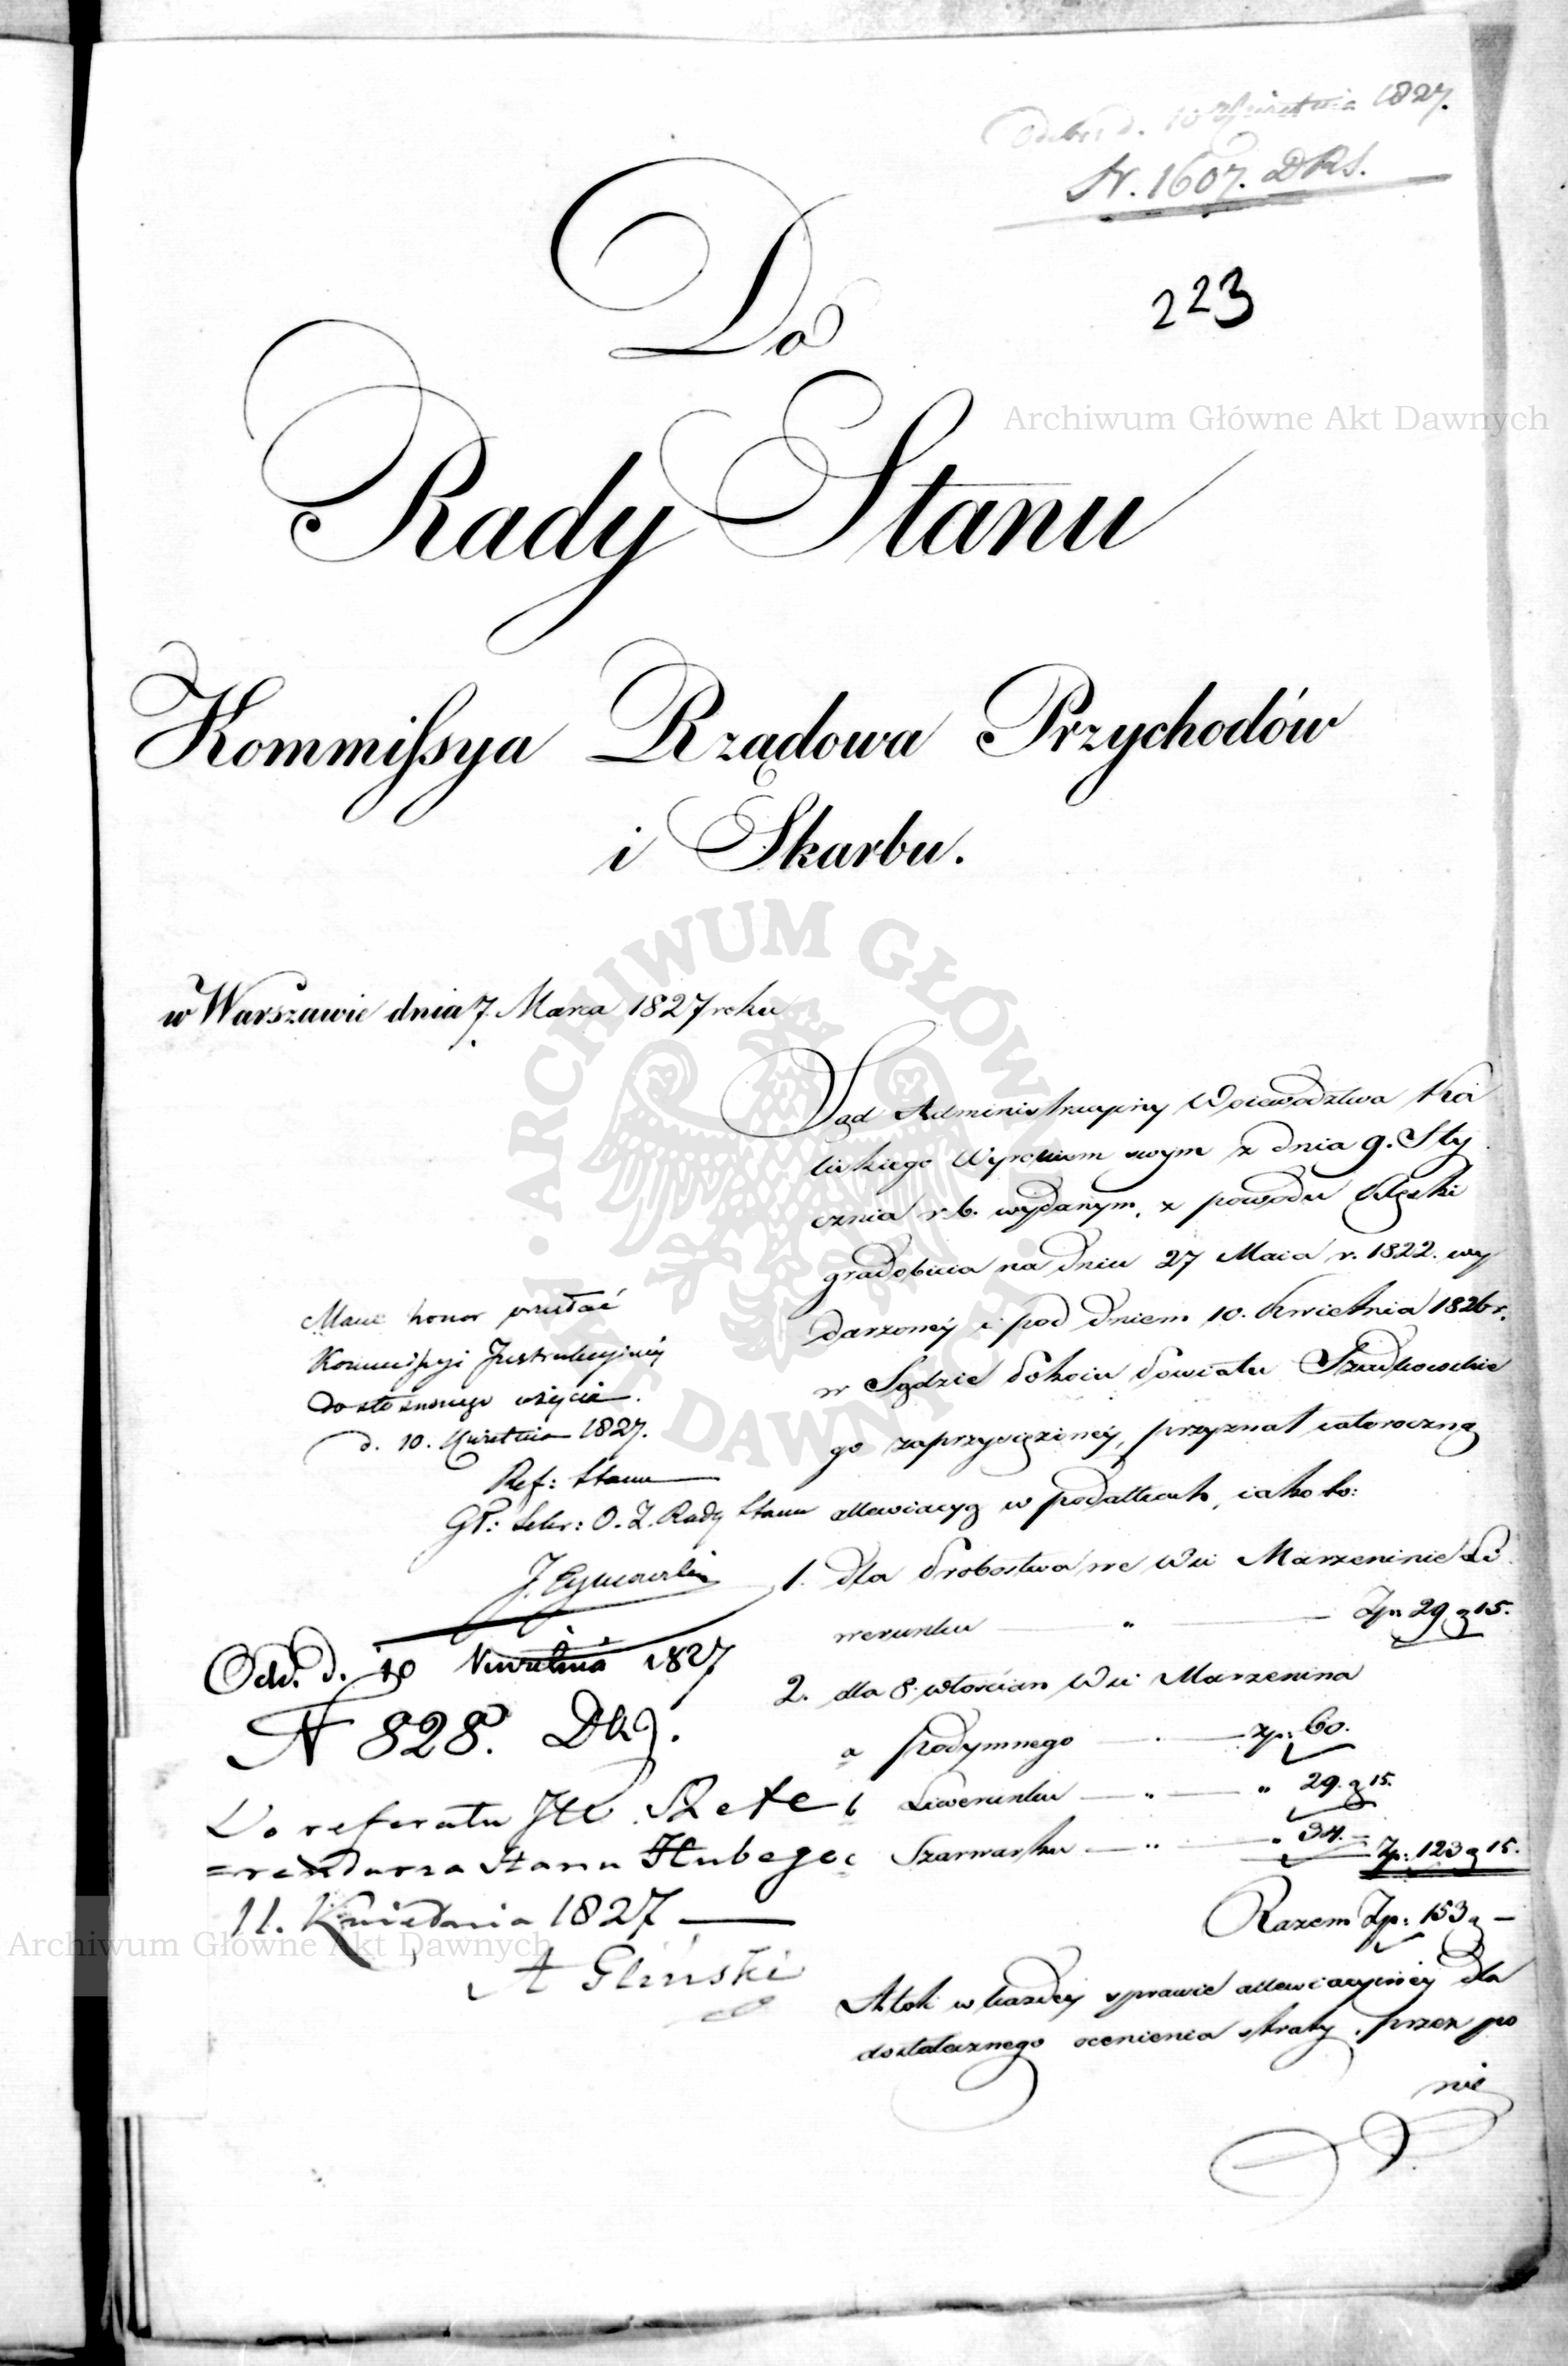 Odebr. d. 10 Kwietnia 1827.
N. 1607. DRS.
223
Do
Rady Stanu
Kommissya Rządowa Przychodów
i Skarbu.
w Warszawie dnia 7. Marca 1827 roku
Sąd Administracyiny Woiewodztwa Ka
liskiego Wyrokiem swym z dnia 9. Sty
cznia r. b. wydanym, z powodu klęski
gradobicia na dniu 27 Maia r. 1822. wy
darzoney i pod dniem 10. Kwietnia 1826 r.
w Sądzie Pokoiu Powiatu Szadkowskie
go zaprzysiężoney, przyznał całoroczną
allewiacyą w podatkach, iako to:
1. dla Probostwa we Wsi Marzeninie Li
werunku — " — Zp. 29 g 15.
2. dla 8. włościan Wsi Marzenina
a podymnego — . — zp: 60.
b Liwerunku — " — " 29. g 15.
c Szarwarku — " — " 34. — Zp: 123 g 15.
Razem Zp: 153 g —
A tak w każdey sprawie allewiacyiney dla
dostatecznego ocenienia straty, przez po
nie
Mam honor przesłać
Kommissyi Instrukcyiney
do stosownego użycia.
d. 10. Kwietnia 1827.
Ref: Stanu
Gł: Sekr: O. Z. Rady Stanu
Odd. d. 10 Kwietnia 1827
N 828.
Do referatu JW. Refe
=rendarza Stanu Hubego
11. Kwietnia 1827 —
A Gliński
Archiwum Główne Akt Dawnych
· ARCHIWUM GŁÓWNE · AKT DAWNYCH
Archiwum Główne Akt Dawnych